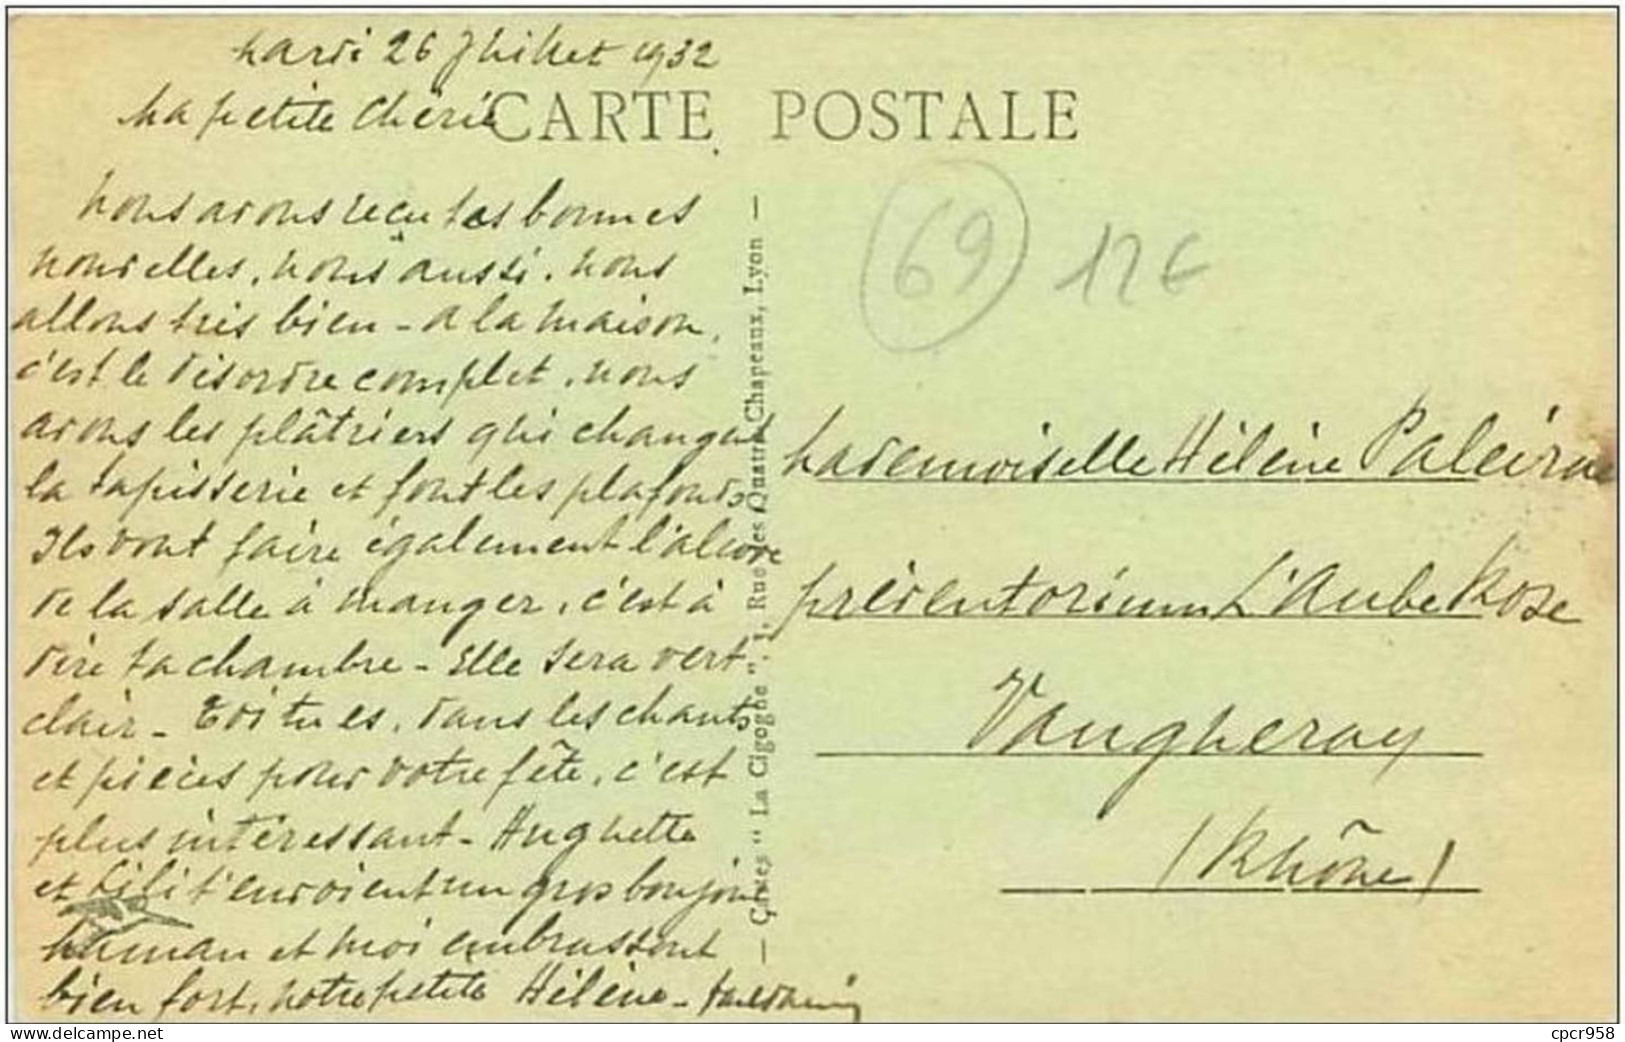 Mardi 26 Juillet 1932
Ma petite Chérie
CARTE POSTALE
Nous avons reçu tes bonnes
nouvelles, nous aussi. nous
allons très bien - a la maison,
c'est le désordre complet, nous
avons les plâtriers qui changent
la tapisserie et font les plafonds
Ils vont faire également l'alcove
de la salle à manger, c'est à
dire ta chambre - Elle sera vert
clair - Toi tu es, dans les chants
et pièces pour votre fête, c'est
plus intéressant - Huguette
et Fifi t'envoient un gros bonjour
Maman et moi embrassont
bien fort, notre petite Hélène -
Cartes " La Cigogne ", 1, Rue des Quatre Chapeaux, Lyon
69 12€
Mademoiselle Hélène
préventorium L'Aube Rose
Vaugneray
(Rhône)
cpcr958